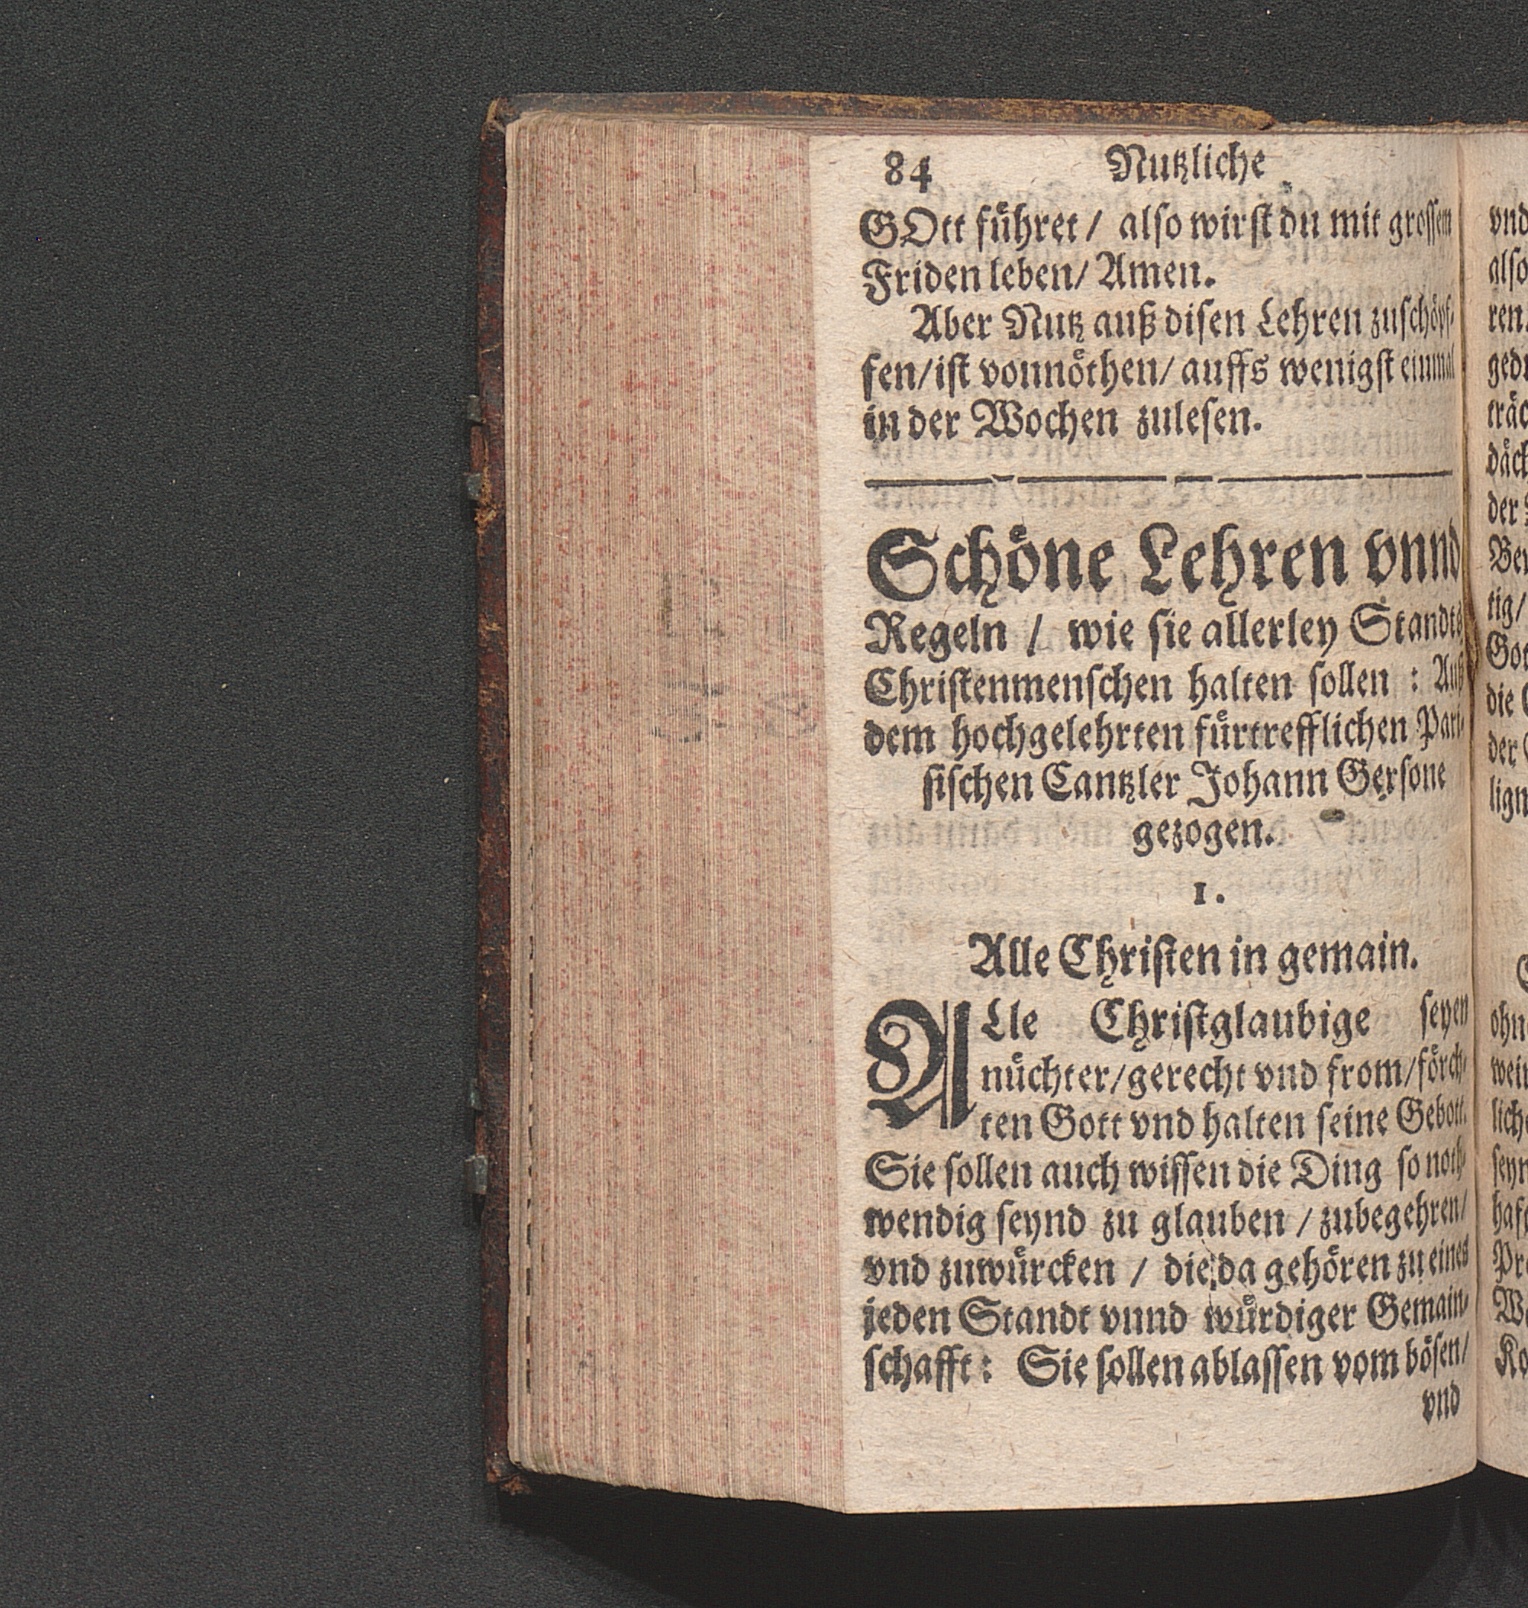 84 Nutzliche
GOtt führet / also wirst du mit grossem
Friden leben / Amen.
Aber Nutz auß disen Lehren zuschöpf-
fen / ist vonnöthen / auffs wenigst einmal
in der Wochen zulesen.
Schöne Lehren vnnd
Regeln / wie sie allerley Standts
Christenmenschen halten sollen : Auß
dem hochgelehrten fürtrefflichen Pari-
sischen Cantzler Johann Gersone
gezogen.
1.
Alle Christen in gemain.
ALle Christglaubige seyen
nüchter / gerecht vnd from / förch-
ten Gott vnd halten seine Gebott.
Sie sollen auch wissen die Ding so noth-
wendig seynd zu glauben / zubegehren /
vnd zuwürcken / die da gehören zu eines
jeden Standt vnnd würdiger Gemain-
schafft : Sie sollen ablassen vom bösen /
vnd
vnd
also
ren.
der
tig /
die
der